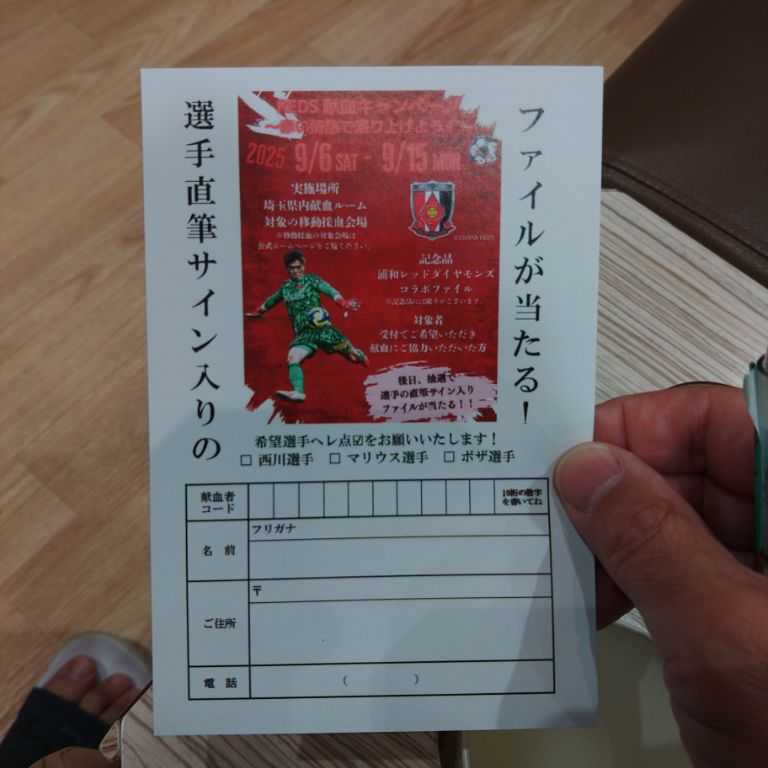 選手直筆サイン入りの
ファイルが当たる！
REDS 献血キャンペーン
2025 9/6 SAT - 9/15 MON
実施場所
埼玉県内献血ルーム
対象の移動採血会場
※移動採血の対象会場は
公式ホームページをご覧ください。
記念品
浦和レッドダイヤモンズ
コラボファイル
対象者
受付でご希望いただき
献血にご協力いただいた方
後日、抽選で
選手の直筆サイン入り
ファイルが当たる！！
希望選手へレ点☑をお願いいたします！
□ 西川選手 □ マリウス選手 □ ボザ選手
献血者
コード
10桁の数字
を書いてね
フリガナ
名前
〒
ご住所
電話 ( )